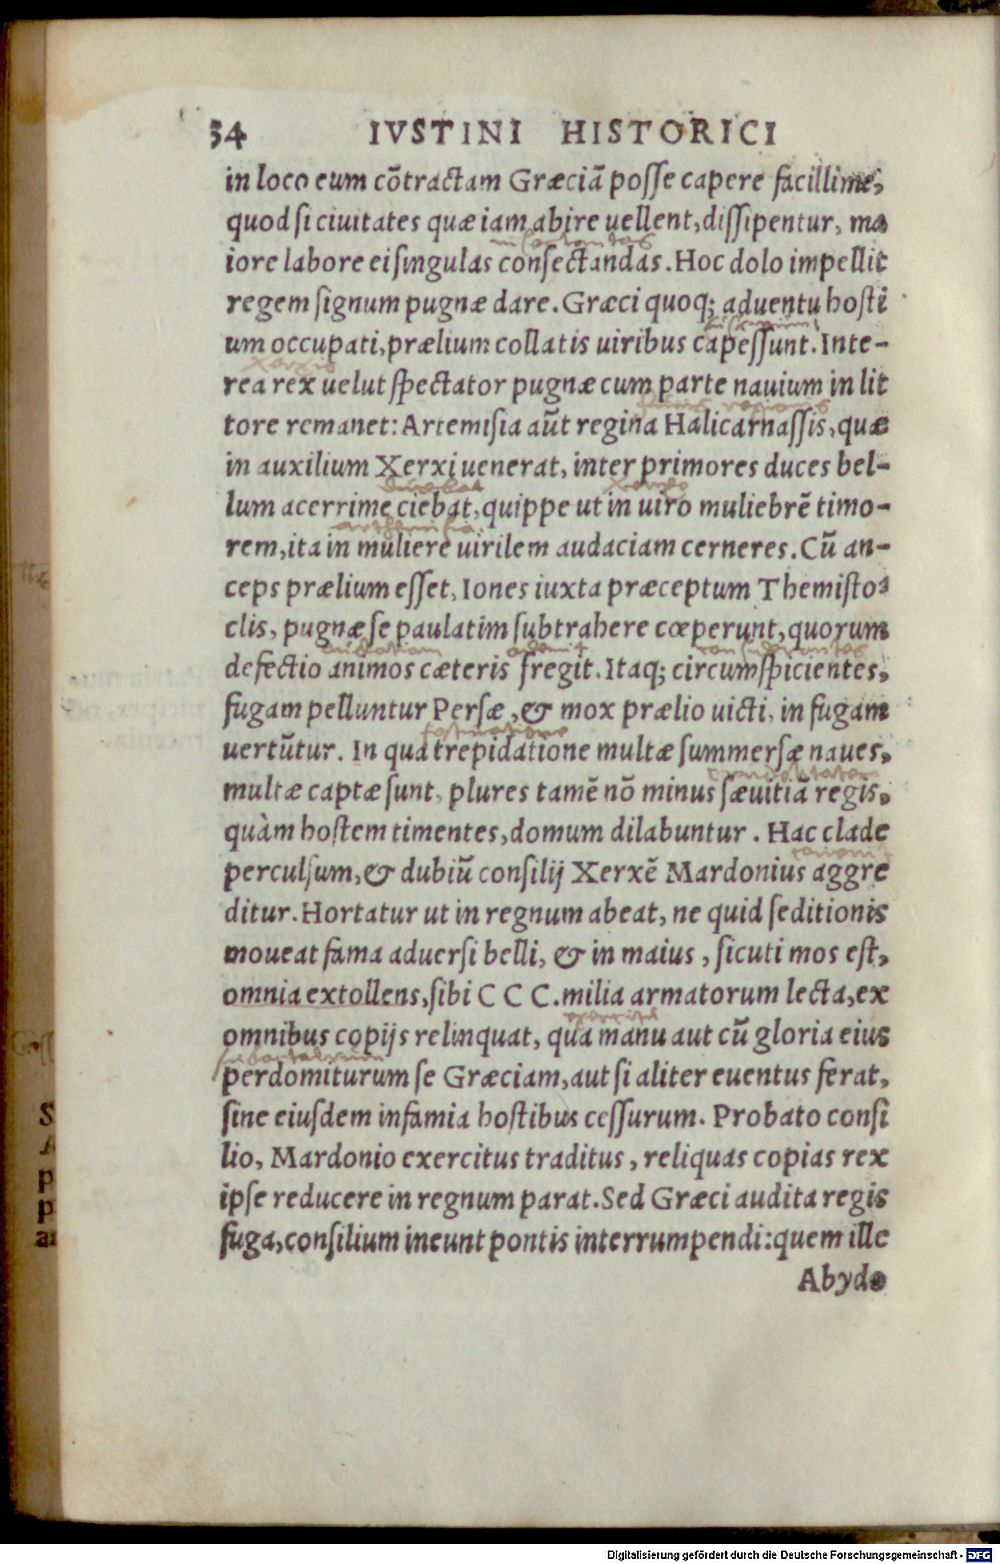 34 IVSTINI HISTORICI
in loco eum cõtractam Græciã posse capere facillime,
quod si ciuitates quæ iam abire uellent, dissipentur, ma
insectantas
iore labore ei singulas consectandas. Hoc dolo impellit
regem signum pugnæ dare. Græci quoq; aduentu hosti
um occupati, prælium collatis uiribus capessunt. Inte-
Xerxis
rea rex uelut spectator pugnæ cum parte nauium in lit
tore remanet: Artemisia aũt regina Halicarnassis, quæ
in auxilium Xerxi uenerat, inter primores duces bel-
lum acerrime ciebat, quippe ut in uiro muliebrẽ timo-
arthemisia
rem, ita in muliere uirilem audaciam cerneres. Cũ an-
ceps prælium esset, Iones iuxta præceptum Themisto-
clis, pugnæ se paulatim subtrahere cœperunt, quorum
defectio animos cæteris fregit. Itaq; circumspicientes,
fugam pelluntur Persæ, & mox prælio uicti, in fugam
festinatione
uertũtur. In qua trepidatione multæ summersæ naues,
crudelitatem
multæ captæ sunt, plures tamẽ nõ minus sæuitiã regis,
quàm hostem timentes, domum dilabuntur. Hac clade
perculsum, & dubiũ consilij Xerxẽ Mardonius aggre
ditur. Hortatur ut in regnum abeat, ne quid seditionis
moueat fama aduersi belli, & in maius, sicuti mos est,
omnia extollens, sibi CCC. milia armatorum lecta, ex
omnibus copijs relinquat, qua manu aut cũ gloria eius
perdomiturum se Græciam, aut si aliter euentus ferat,
sine eiusdem infamia hostibus cessurum. Probato consi
lio, Mardonio exercitus traditus, reliquas copias rex
ipse reducere in regnum parat. Sed Græci audita regis
fuga, consilium ineunt pontis interrumpendi: quem ille
Abydo
Digitalisierung gefördert durch die Deutsche Forschungsgemeinschaft - DFG